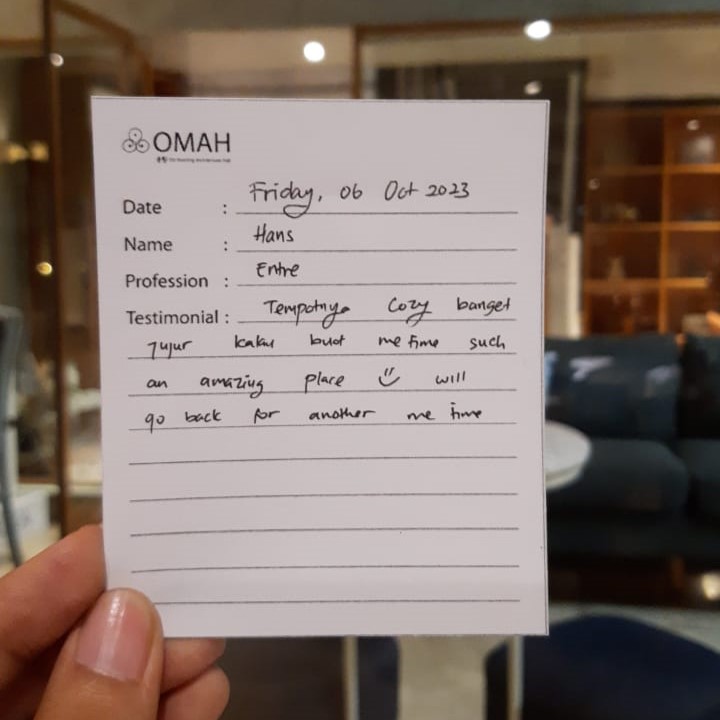 OMAH
Date : Friday, 06 Oct 2023
Name : Hans
Profession : Entre
Testimonial : Tempatnya Cozy banget
Jujur kaku buat me time such
an amazing place will
go back for another me time